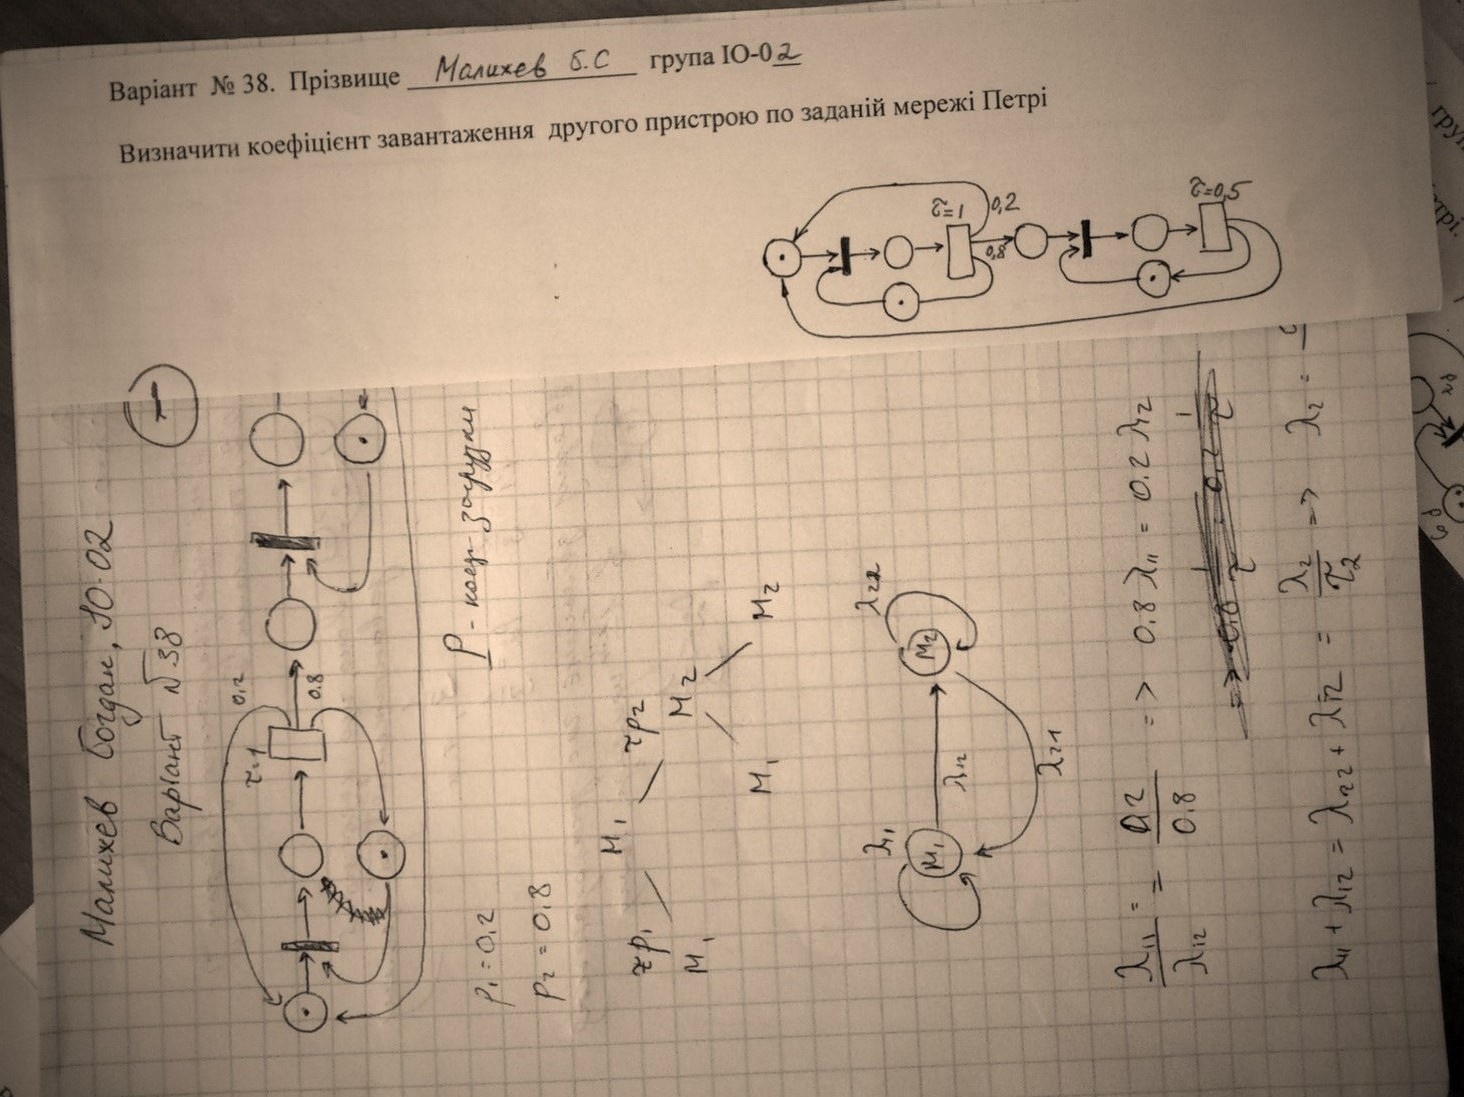 Варіант № 38. Прізвище Малихев Б.С група ІО-02
Визначити коефіцієнт завантаження другого пристрою по заданій мережі Петрі
τ=1
0,2
0,8
τ=0,5
Малихев Богдан, ІО-02
Варіант №38
τ=1
0,2
0.8
P - коеф. загрузки
P₁ = 0,2
P₂ = 0,8
M₁
τP₁
τP₂
M₁
M₂
M₁
M₂
λ₁₁
M₁
λ₁₂
M₂
λ₂₂
λ₂₁
λ₁₁/λ₁₂ = 0,2/0.8 => 0.8 λ₁₁ = 0.2 λ₁₂
λ₁₁ + λ₁₂ = λ₂₂ + λ₁₂ = λ₂/τ₂ => λ₂ =